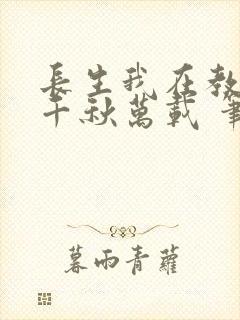 長生我在教
千秋萬載 筆
暮雨青蘿